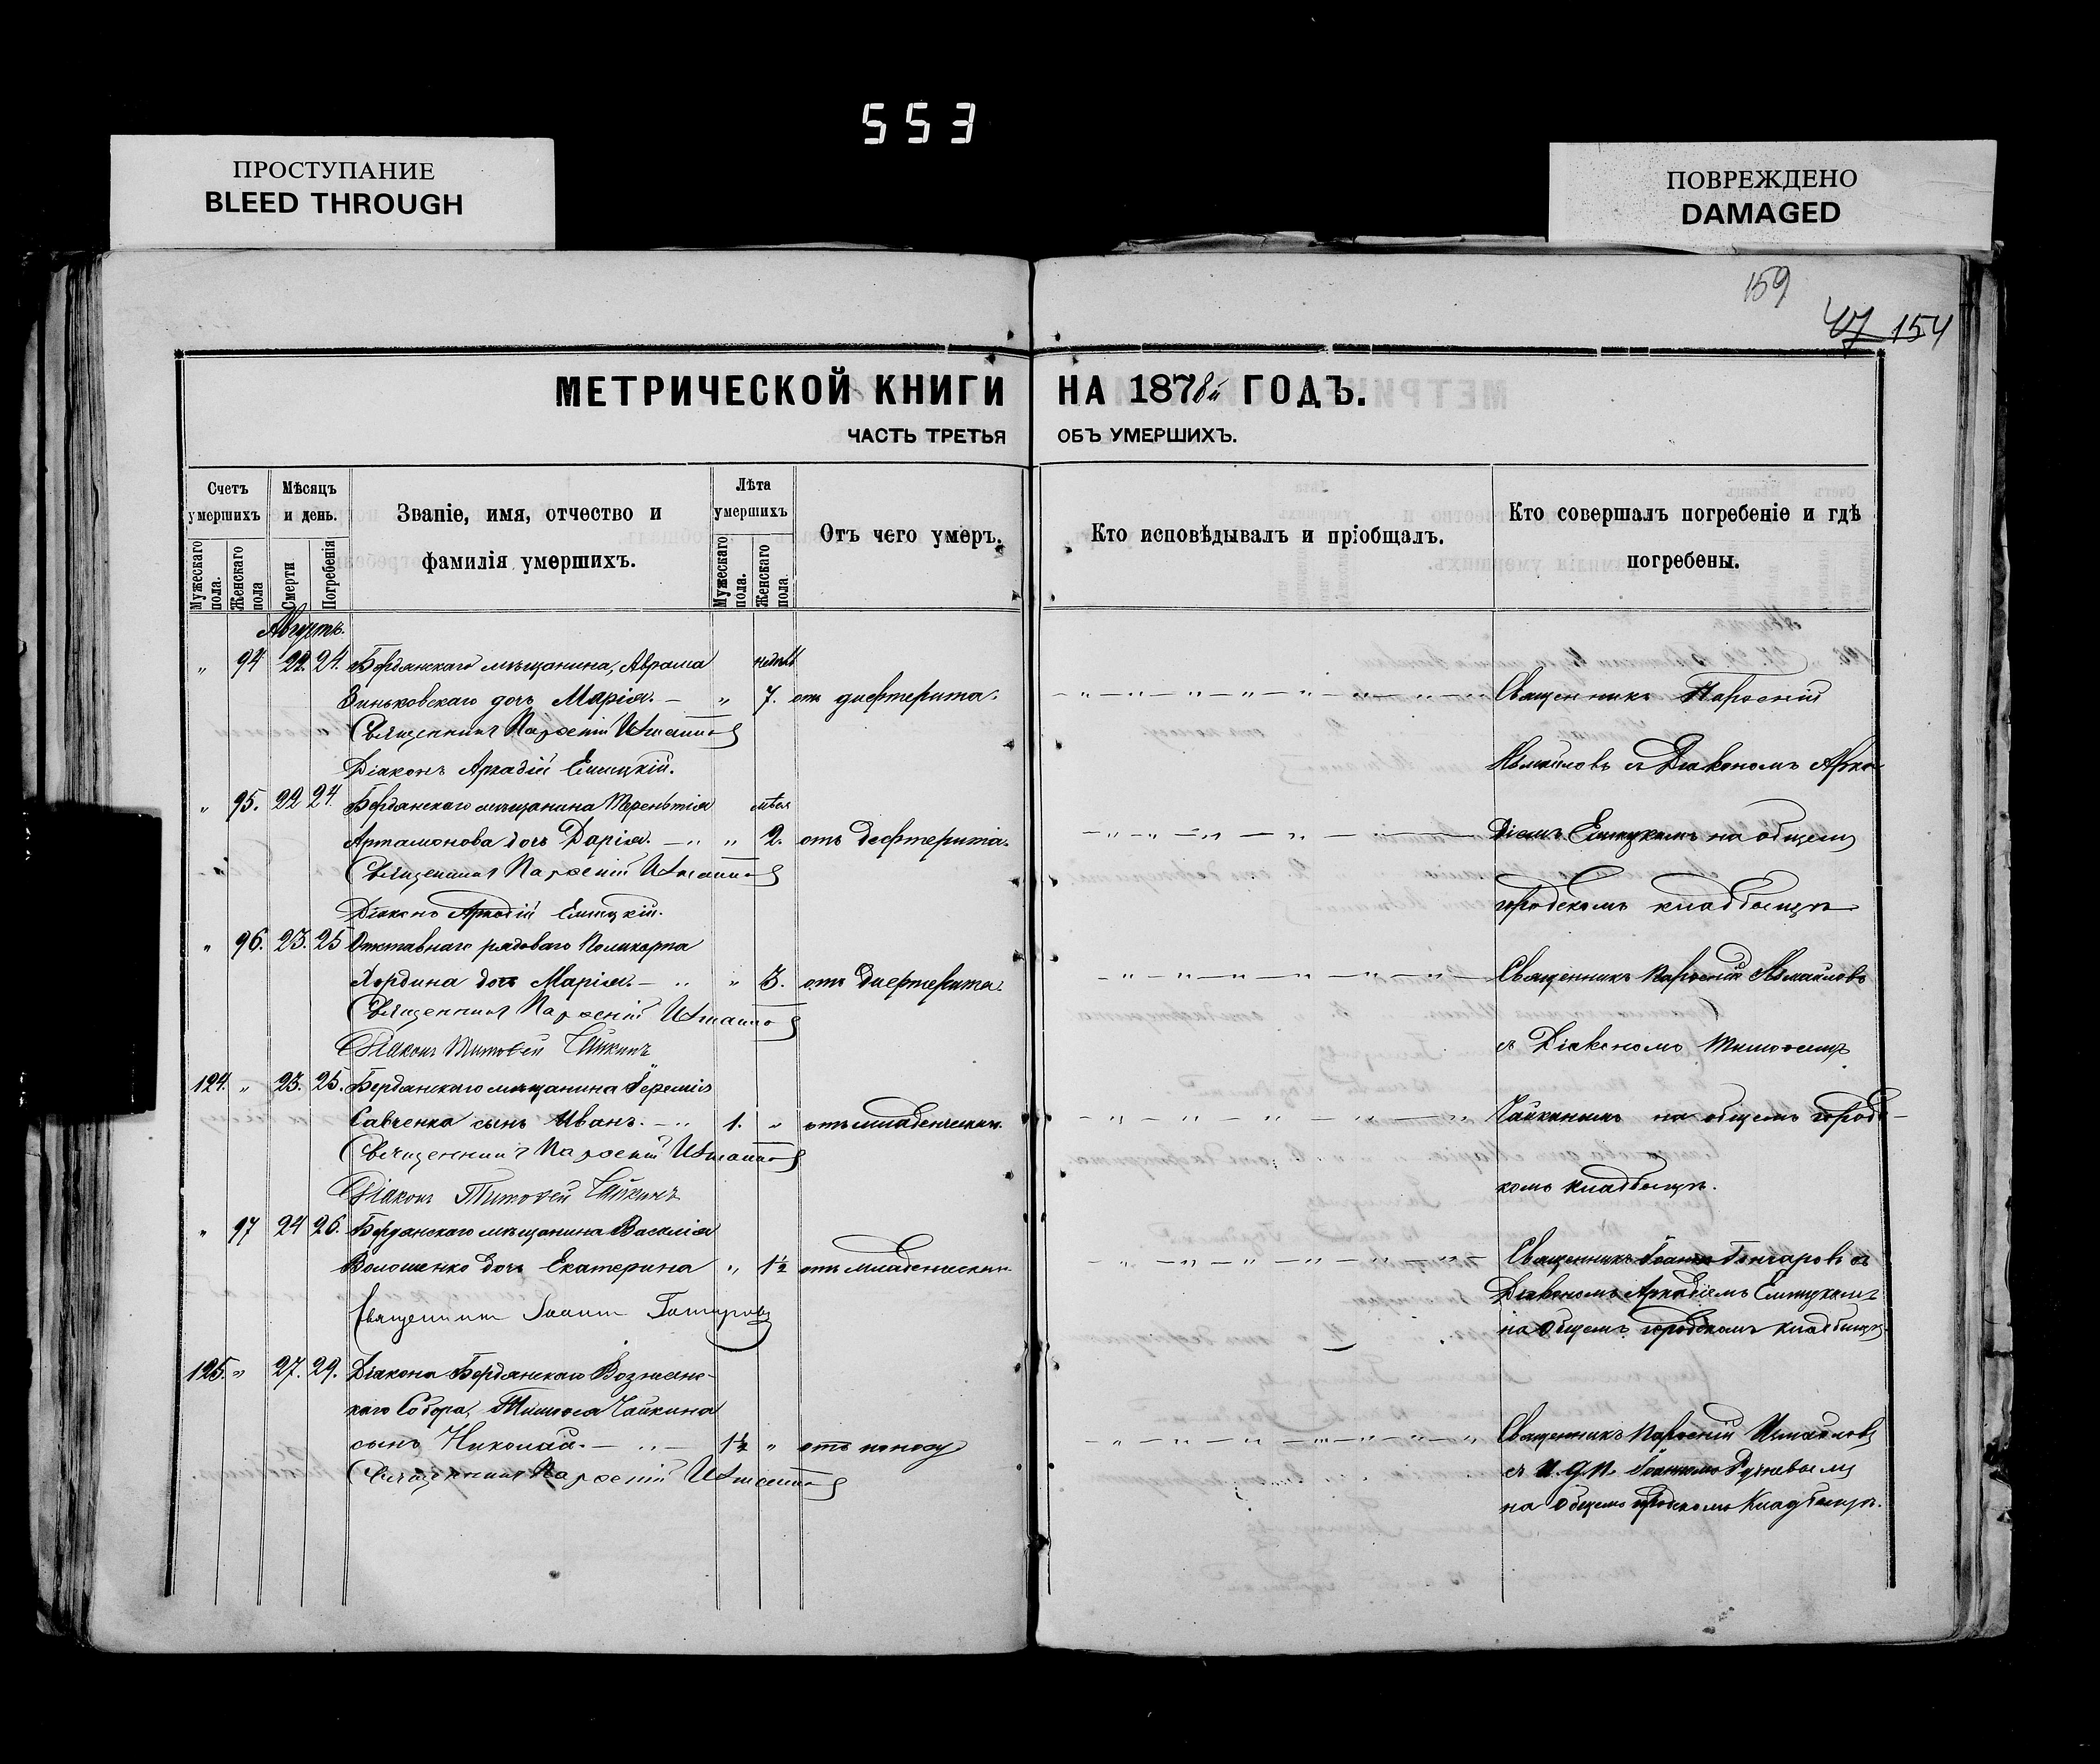 553
ПРОСТУПАНИЕ
BLEED THROUGH
ПОВРЕЖДЕНО
DAMAGED
159
47 154
МЕТРИЧЕСКОЙ КНИГИ НА 1878й ГОДЪ.
ЧАСТЬ ТРЕТЬЯ ОБЪ УМЕРШИХЪ.
Счетъ умершихъ
Мужескаго пола.
Женскаго пола
Мѣсяцъ и день.
Смерти
Погребенія
Званіе, имя, отчество и
фамилія умершихъ.
Лѣта умершихъ
Мужескаго пола.
Женскаго пола.
Отъ чего умеръ.
Кто исповѣдывалъ и пріобщалъ.
Кто совершалъ погребеніе и гдѣ
погребены.
Августъ.
" 94 22. 24. Бердянскаго мѣщанина, Аврама
Зиньковскаго дочь Марія. — " 7. отъ дифтерита. Священникъ Парѳеній
Священникъ Парѳеній Измаиловъ
Діаконъ Аркадій Емицкій. Измаиловъ съ Діакономъ Арка
" 95. 22 24. Бердянскаго мѣщанина Терентія
Артамонова дочь Дарія. — " " 2. отъ дефтерита. діемъ Емицкимъ на общемъ
Священникъ Парѳеній Измаиловъ
Діаконъ Аркадій Емицкій. городскомъ кладбищѣ
" 96. 23. 25 Отставнаго рядоваго Поликарпа
Хордина дочь Марія. — " " 3. отъ дифтерита. Священникъ Парѳеній Измаиловъ
Священникъ Парѳеній Измаиловъ
Діаконъ Тимоѳей Чайкинъ съ Діакономъ Тимоѳеемъ
124. " 23. 25. Бердянскаго мѣщанина Іереміи
Савченка сынъ Иванъ. — " 1. " отъ младенческ. Чайкинымъ на общемъ городс-
Священникъ Парѳеній Измаиловъ
Діаконъ Тимоѳей Чайкинъ комъ кладбищѣ.
" 97 24 26. Бердянскаго мѣщанина Василія
Волошенко дочь Екатерина " 1½ отъ младенческ. Священникъ Іоаннъ Гончаровъ съ
Діакономъ Аркадіемъ Емицкимъ
Священникъ Іоаннъ Гончаровъ на общемъ городскомъ кладбищѣ.
125. " 27. 29. Діакона Бердянскаго Вознесенс-
каго Собора, Тимоѳея Чайкина
сынъ Николай. — " — 1½ " отъ поносу Священникъ Парѳеній Измаиловъ
Священникъ Парѳеній Измаиловъ съ И. д. п. Іоанномъ
на общемъ городскомъ кладбищѣ.